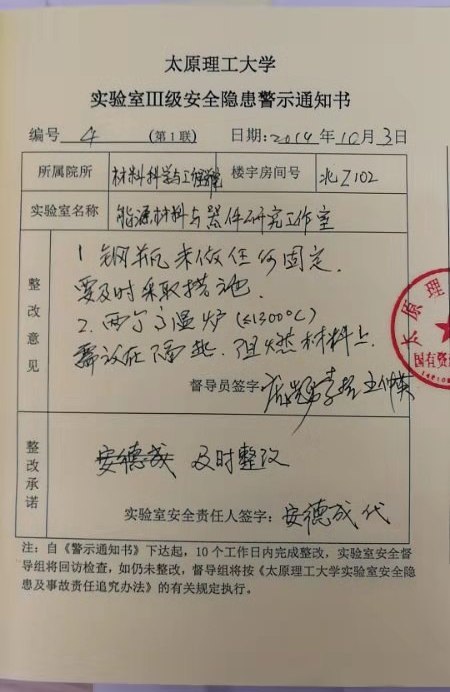 太原理工大学
实验室III级安全隐患警示通知书
编号 4 (第1联) 日期:2019年10月3日
所属院所 材料科学与工程学院 楼宇房间号
实验室名称 能源材料与器件研究工作室
整改意见
1 钢瓶未做任何固定.
要及时采取措施.
2. 两台高温炉(≤1300℃)
需放在隔热、阻燃材料上.
督导员签字:
整改承诺
安德成 及时整改
实验室安全责任人签字:安德成代
注:自《警示通知书》下达起,10个工作日内完成整改,实验室安全督
导组将回访检查,如仍未整改,督导组将按《太原理工大学实验室安全隐
患及事故责任追究办法》的有关规定执行。
太原理
国有资